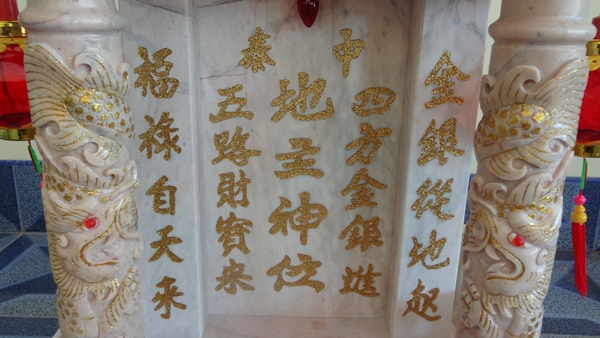 金銀從地起
中泰
四方金銀進
地主神位
五路財寳来
福祿自天来